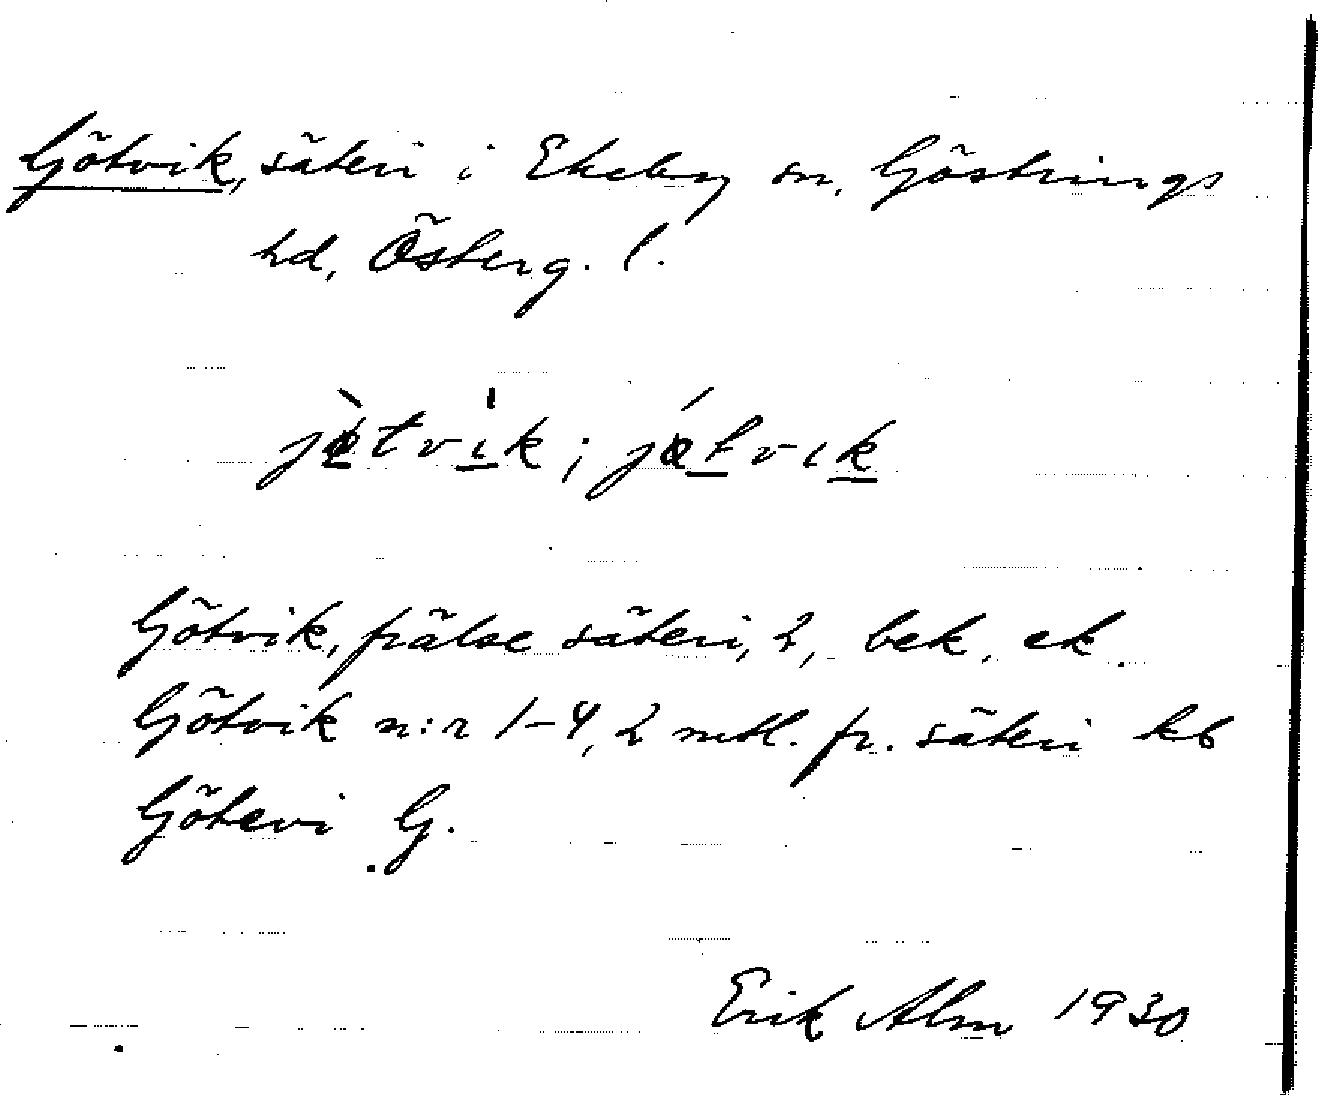 Götvik, säteri i Ekeby sn, Göstrings
hd, Österg. l.
jø̀tvìk; jǿtvık
Götvik, frälse säteri, 2, bek. ek.
Götvik n:r 1-4, 2 mtl. fr. säteri kb
Götevi G.
Erik Alm 1930